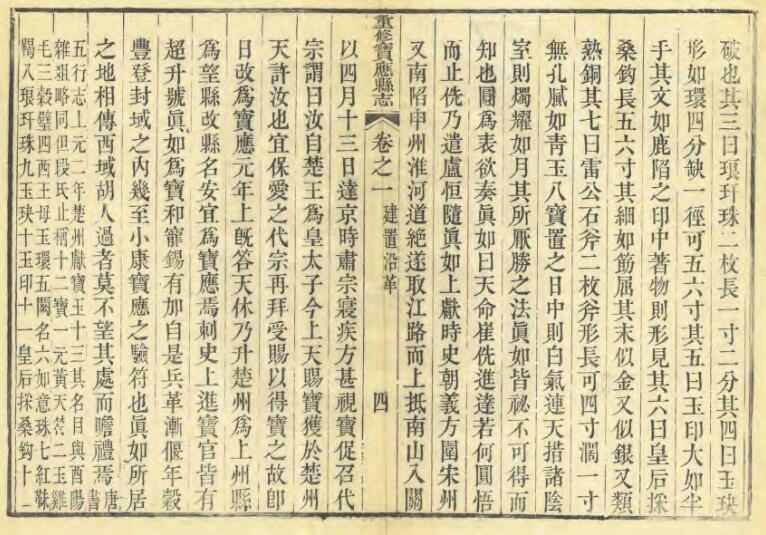 破也其三曰琅玕珠二枚長一寸二分其四曰玉玦
形如環四分缺一徑可五六寸其五曰玉印大如半
手其文如鹿陷之印中著物則形見其六曰皇后採
桑鈎長五六寸其細如筯屈其末似金又似銀又類
熟銅其七曰雷公石斧二枚斧形長可四寸濶一寸
無孔膩如靑玉八寶置之日中則白氣連天措諸陰
室則燭耀如月其所厭勝之法眞如皆祕不可得而
知也圓爲表欲奏眞如曰天命崔侁進達若何圓悟
而止侁乃遣盧恒隨眞如上獻時史朝義方圍宋州
又南陷申州淮河道絶遂取江路而上抵南山入關
重修寶應縣志 卷之一 建置沿革 四
以四月十三日達京時肅宗寢疾方甚視寶促召代
宗謂曰汝自楚王爲皇太子今上天賜寶獲於楚州
天許汝也宜保愛之代宗再拜受賜以得寶之故卽
日改爲寶應元年上旣答天休乃升楚州爲上州縣
爲望縣改縣名安宜爲寶應焉刺史上進寶官皆有
超升號眞如爲寶和寵錫有加自是兵革漸偃年穀
豐登封域之內幾至小康寶應之驗符也眞如所居
之地相傳西域胡人過者莫不望其處而瞻禮焉唐書
五行志上元二年楚州獻寶玉十三其名目與酉陽
雜俎略同但段氏止稱十二寶一元黃天符二玉雞
毛三穀璧四西王母玉環五闕名六如意珠七紅靺
鞨八琅玕珠九玉玦十玉印十一皇后採桑鈎十二